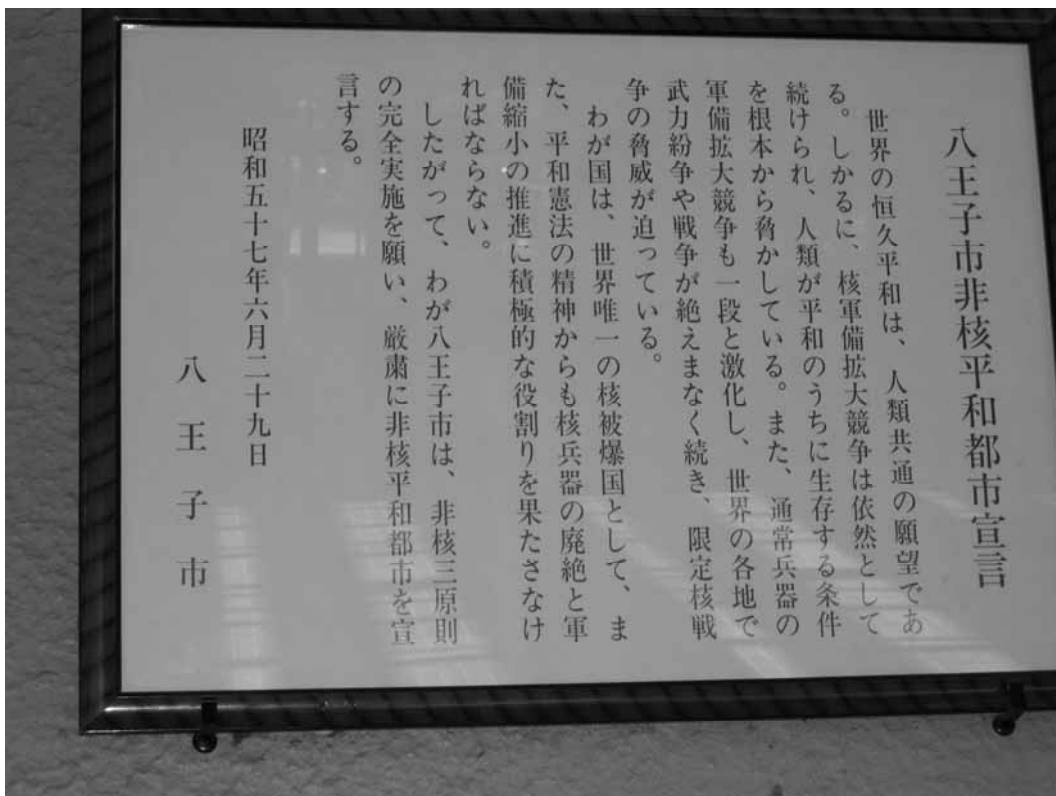 八王子市非核平和都市宣言
世界の恒久平和は、人類共通の願望であ
る。しかるに、核軍備拡大競争は依然として
続けられ、人類が平和のうちに生存する条件
を根本から脅かしている。また、通常兵器の
軍備拡大競争も一段と激化し、世界の各地で
武力紛争や戦争が絶えまなく続き、限定核戦
争の脅威が迫っている。
わが国は、世界唯一の核被爆国として、ま
た、平和憲法の精神からも核兵器の廃絶と軍
備縮小の推進に積極的な役割りを果たさなけ
ればならない。
したがって、わが八王子市は、非核三原則
の完全実施を願い、厳粛に非核平和都市を宣
言する。
昭和五十七年六月二十九日
八王子市